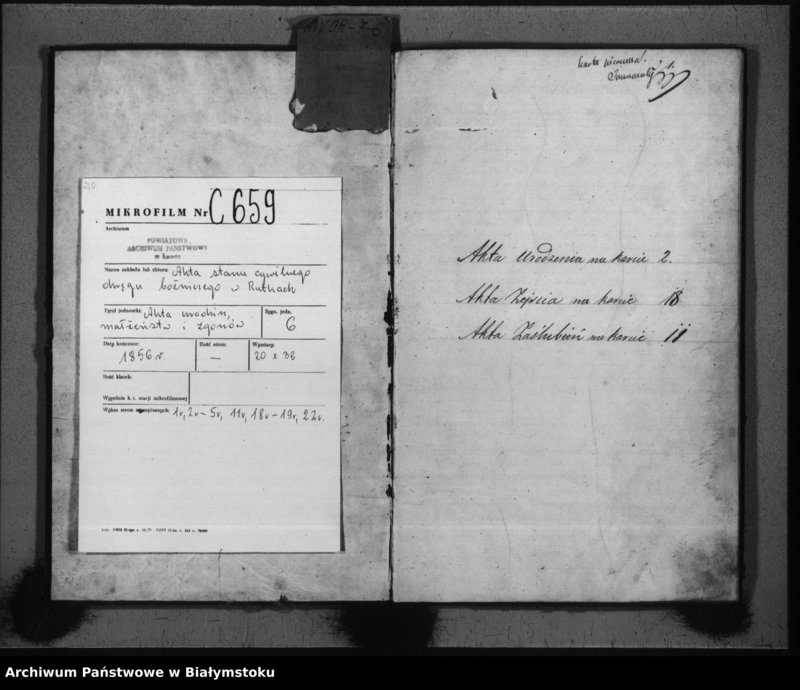 MIKROFILM Nr C 659
Archiwum
POWIATOWE
ARCHIWUM PAŃSTWOWE
Nazwa zakładu lub zbioru: Akta stanu cywilnego
okręgu bożniczego w Rutkach
Tytuł jednostki: Akta urodzin,
małżeństw i zgonów
Sygn. jedn.
6
Daty końcowe:
1856 r.
Ilość stron:
—
Wymiary:
20 x 36
Ilość klatek:
Wypełnia k. t. stacji mikrofilmowej
Wykaz stron niezapisanych: 1v, 2v-5v, 11v, 18v-19v, 22v.
Akta Urodzenia na karcie 2.
Akta Zejścia na karcie 18
Akta Zaślubień na karcie 11
Archiwum Państwowe w Białymstoku